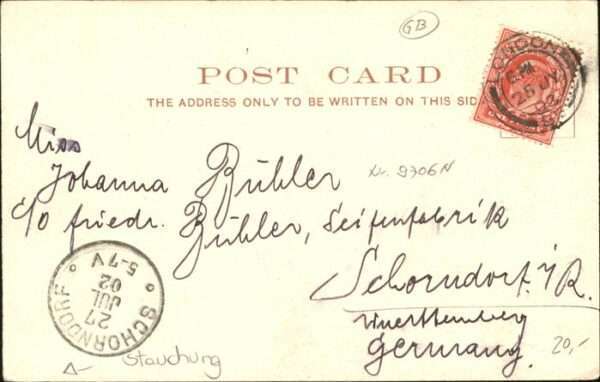 GB
POST CARD
THE ADDRESS ONLY TO BE WRITTEN ON THIS SID
LONDON
25 JY
02
Miss
Johanna Bühler
Nr. 9306N
c/o Friedr. Bühler, Seifenfabrik
Schorndorf i/R.
Wuerttemberg
Germany.
20,-
SCHORNDORF
27
JUL
02
5-7V
Stauchung